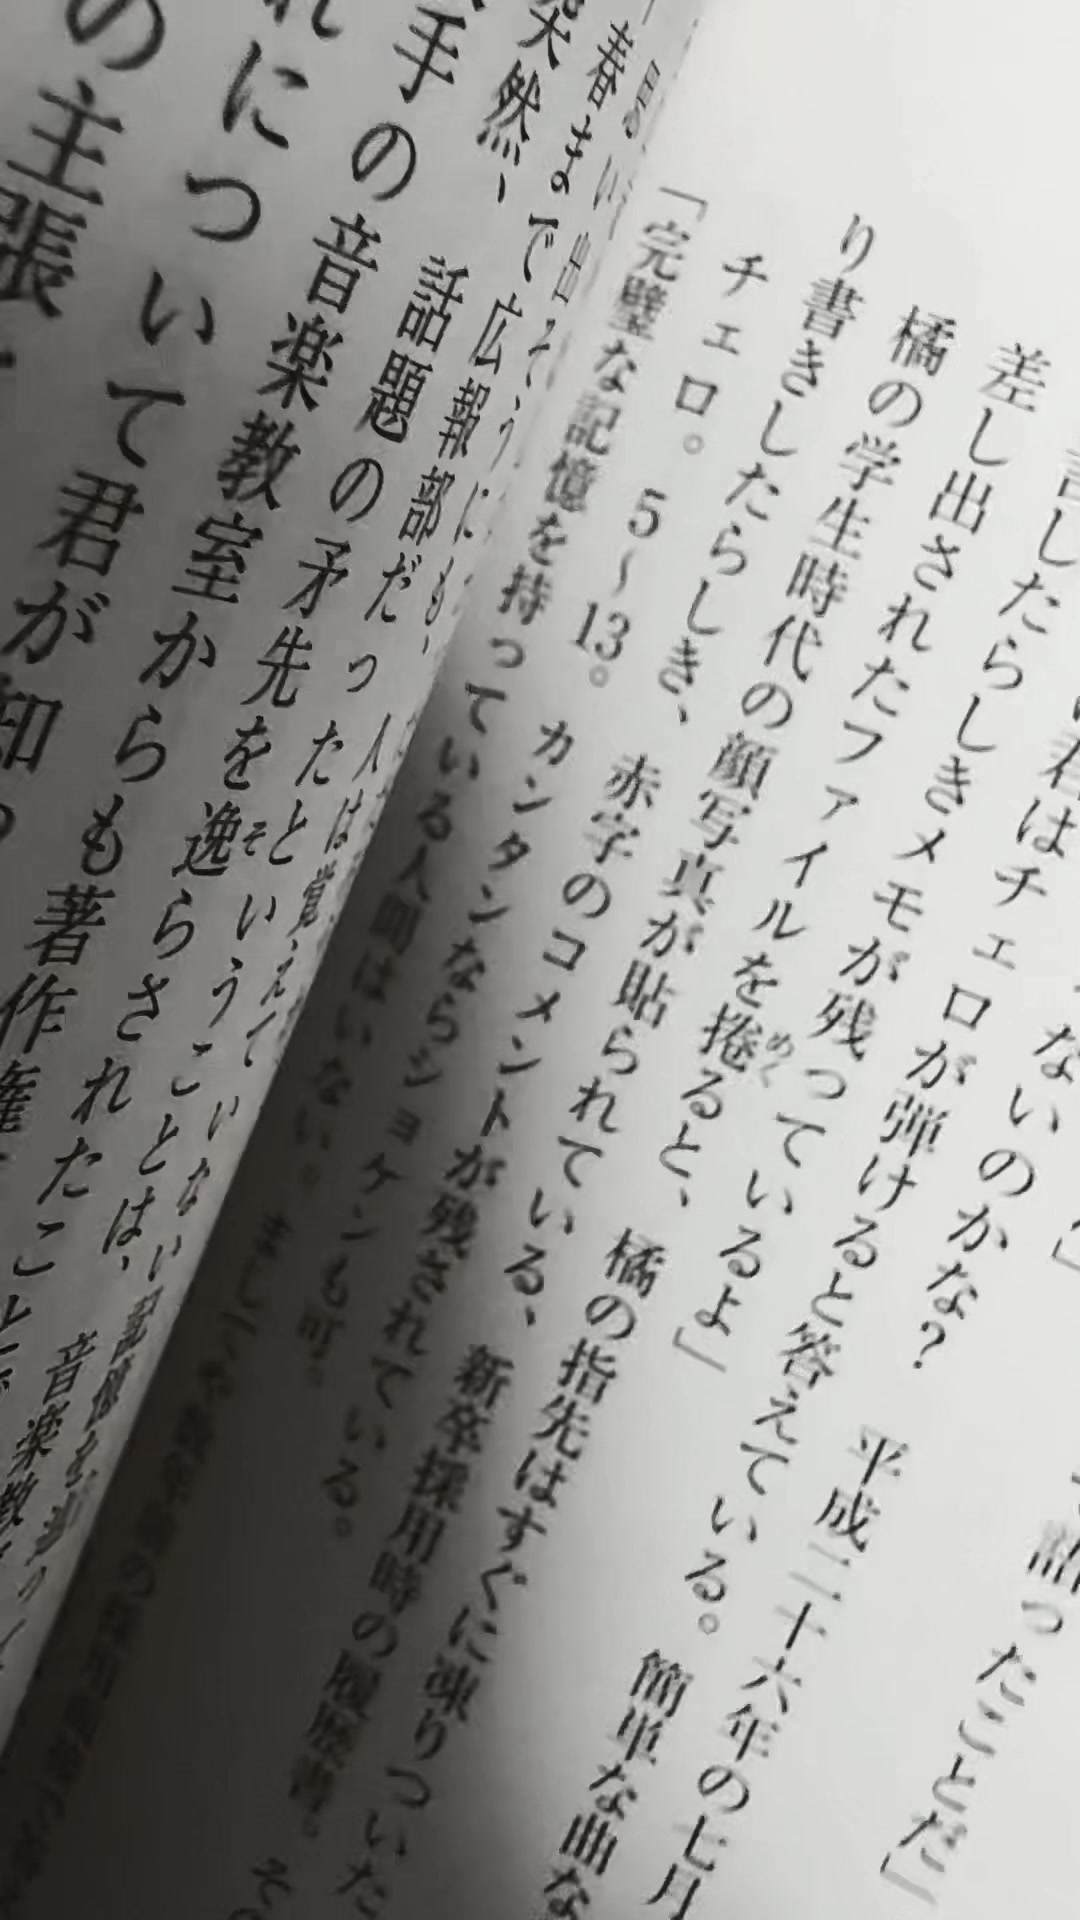 語ったことだ」
ないのかな？　平成二十六年の七月
君はチェロが弾けると答えている。簡単な曲な
したらしきメモが残っているよ」
差し出されたファイルを捲ると、橘の指先はすぐに凍りついた
橘の学生時代の顔写真が貼られている、新卒採用時の履歴書。そ
り書きしたらしき、赤字のコメントが残されている。
チェロ。５〜13。カンタンならショケンも可。
「完璧な記憶を持っている人間はいない。まして
人は覚えていない
春まで広報部だったということは、音楽教
突然、話題の矛先を逸らされたこと
手の音楽教室からも著作権
れについて君が知
の主張